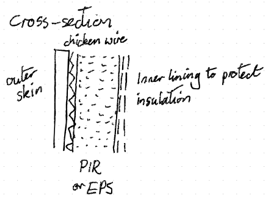 Cross-section
chicken wire
outer
skin
Inner lining to protect
insulation
PIR
or EPS